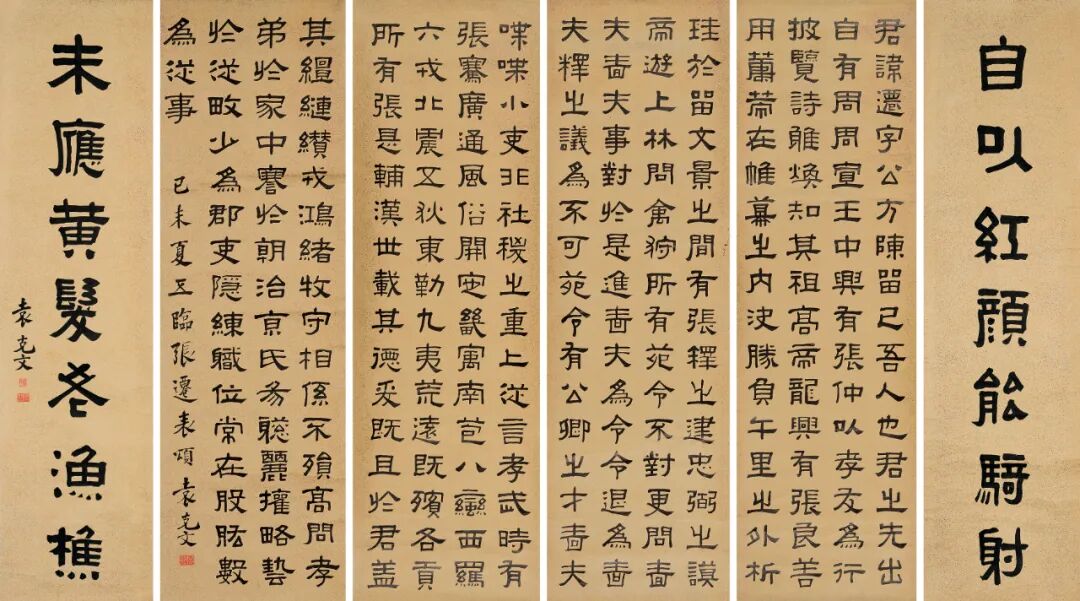 自以紅顏能騎射
君諱遷字公方陳留己吾人也君之先出
自有周周宣王中興有張仲以孝友為行
披覽詩雅煥知其祖高帝龍興有張良善
用籌策在帷幕之內決勝負千里之外析
珪於留文景之間有張釋之建忠弼之謨
帝遊上林問禽狩所有苑令不對更問嗇
夫嗇夫事對於是進嗇夫為令令退為嗇
夫釋之議為不可苑令有公卿之才嗇夫
喋喋小吏非社稷之重上從言孝武時有
張騫廣通風俗開定畿寓南苞八蠻西羈
六戎北震五狄東勤九夷荒遠既殯各貢
所有張是輔漢世載其德爰既且於君蓋
其纏縺纘戎鴻緒牧守相係不殞高問孝
弟於家中謇於朝治京氏易聰麗權略藝
於從畋少為郡吏隱練職位常在股肱數
為從事 己未夏五臨張遷表頌 袁克文
未應黃髮老漁樵
袁克文